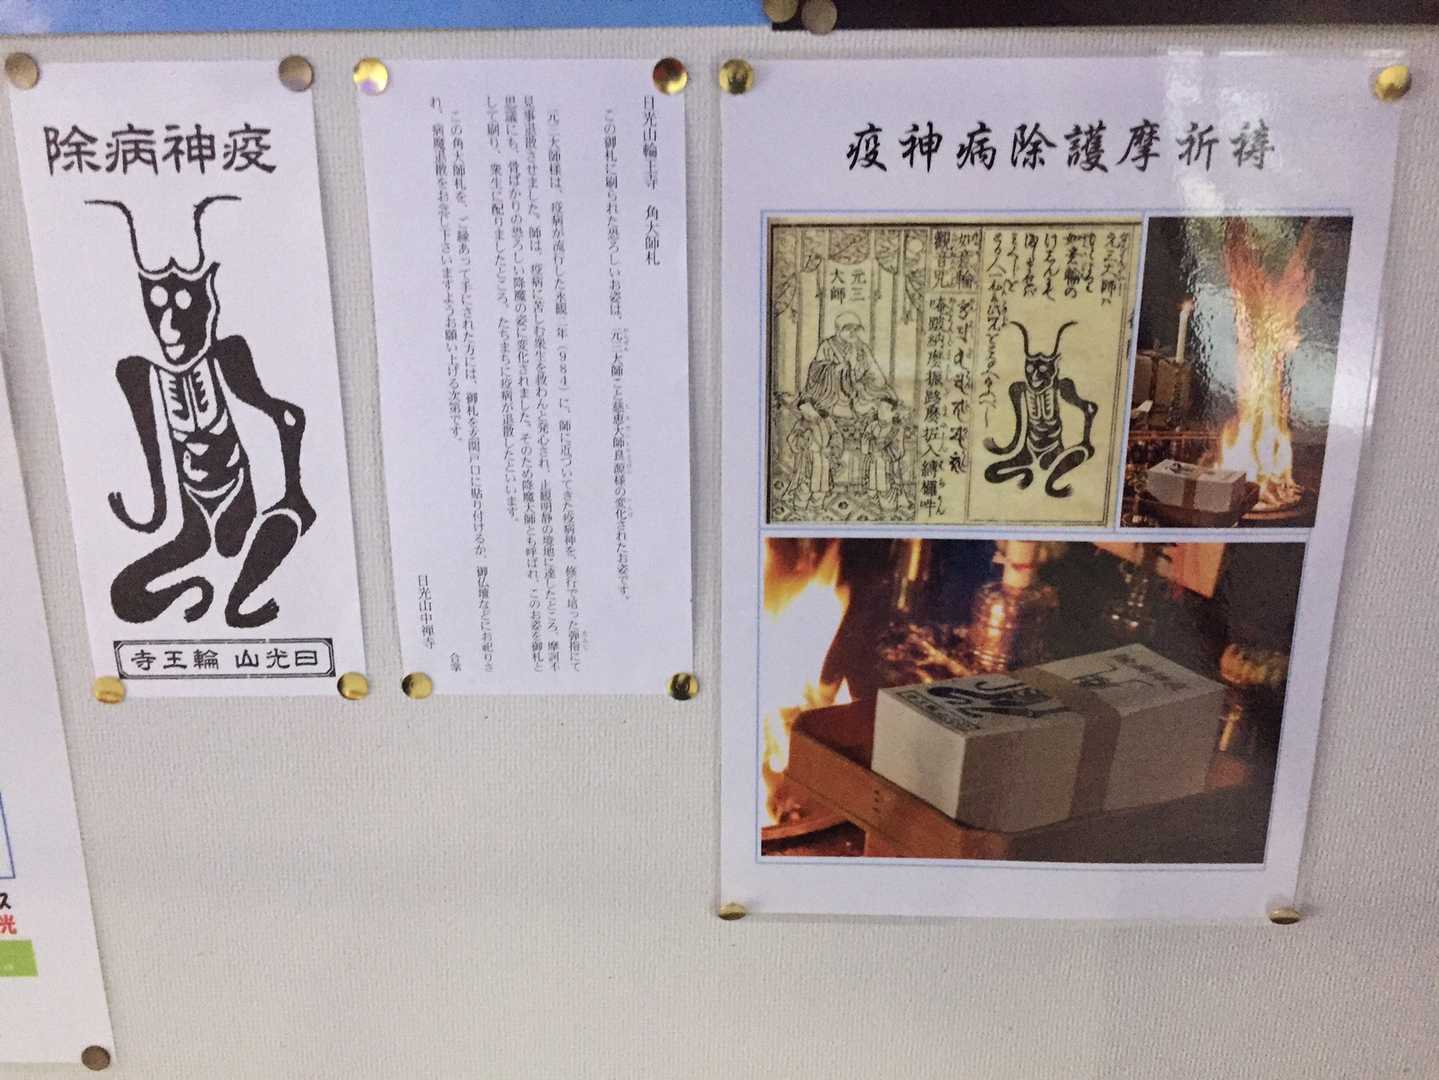 疫神病除
日光山 輪王寺
日光山輪王寺 角大師札
この御札に刷られた恐ろしいお姿は、元三大師こと慈恵大師良源様の変化されたお姿です。
元三大師様は、疫病が流行した永観二年(984)に、師に近づいてきた疫病神を、修行で培った弾指にて
見事退散させました。師は、疫病に苦しむ衆生を救わんと発心され、止観明静の境地に達したところ、摩訶不
思議にも、骨ばかりの恐ろしい降魔の姿に変化されました。そのため降魔大師とも呼ばれ、このお姿を御札と
して刷り、衆生に配りましたところ、たちまちに疫病が退散したといいます。
この角大師札を、ご縁あって手にされた方には、御札を玄関戸口に貼り付けるか、御仏壇などにお祀りさ
れ、病魔退散をお念じ下さいますようお願い上げる次第です。
合掌
日光山中禅寺
疫神病除護摩祈祷
元三
大師
如意輪
観音咒
元三大師ハ
如意輪の
ス
光